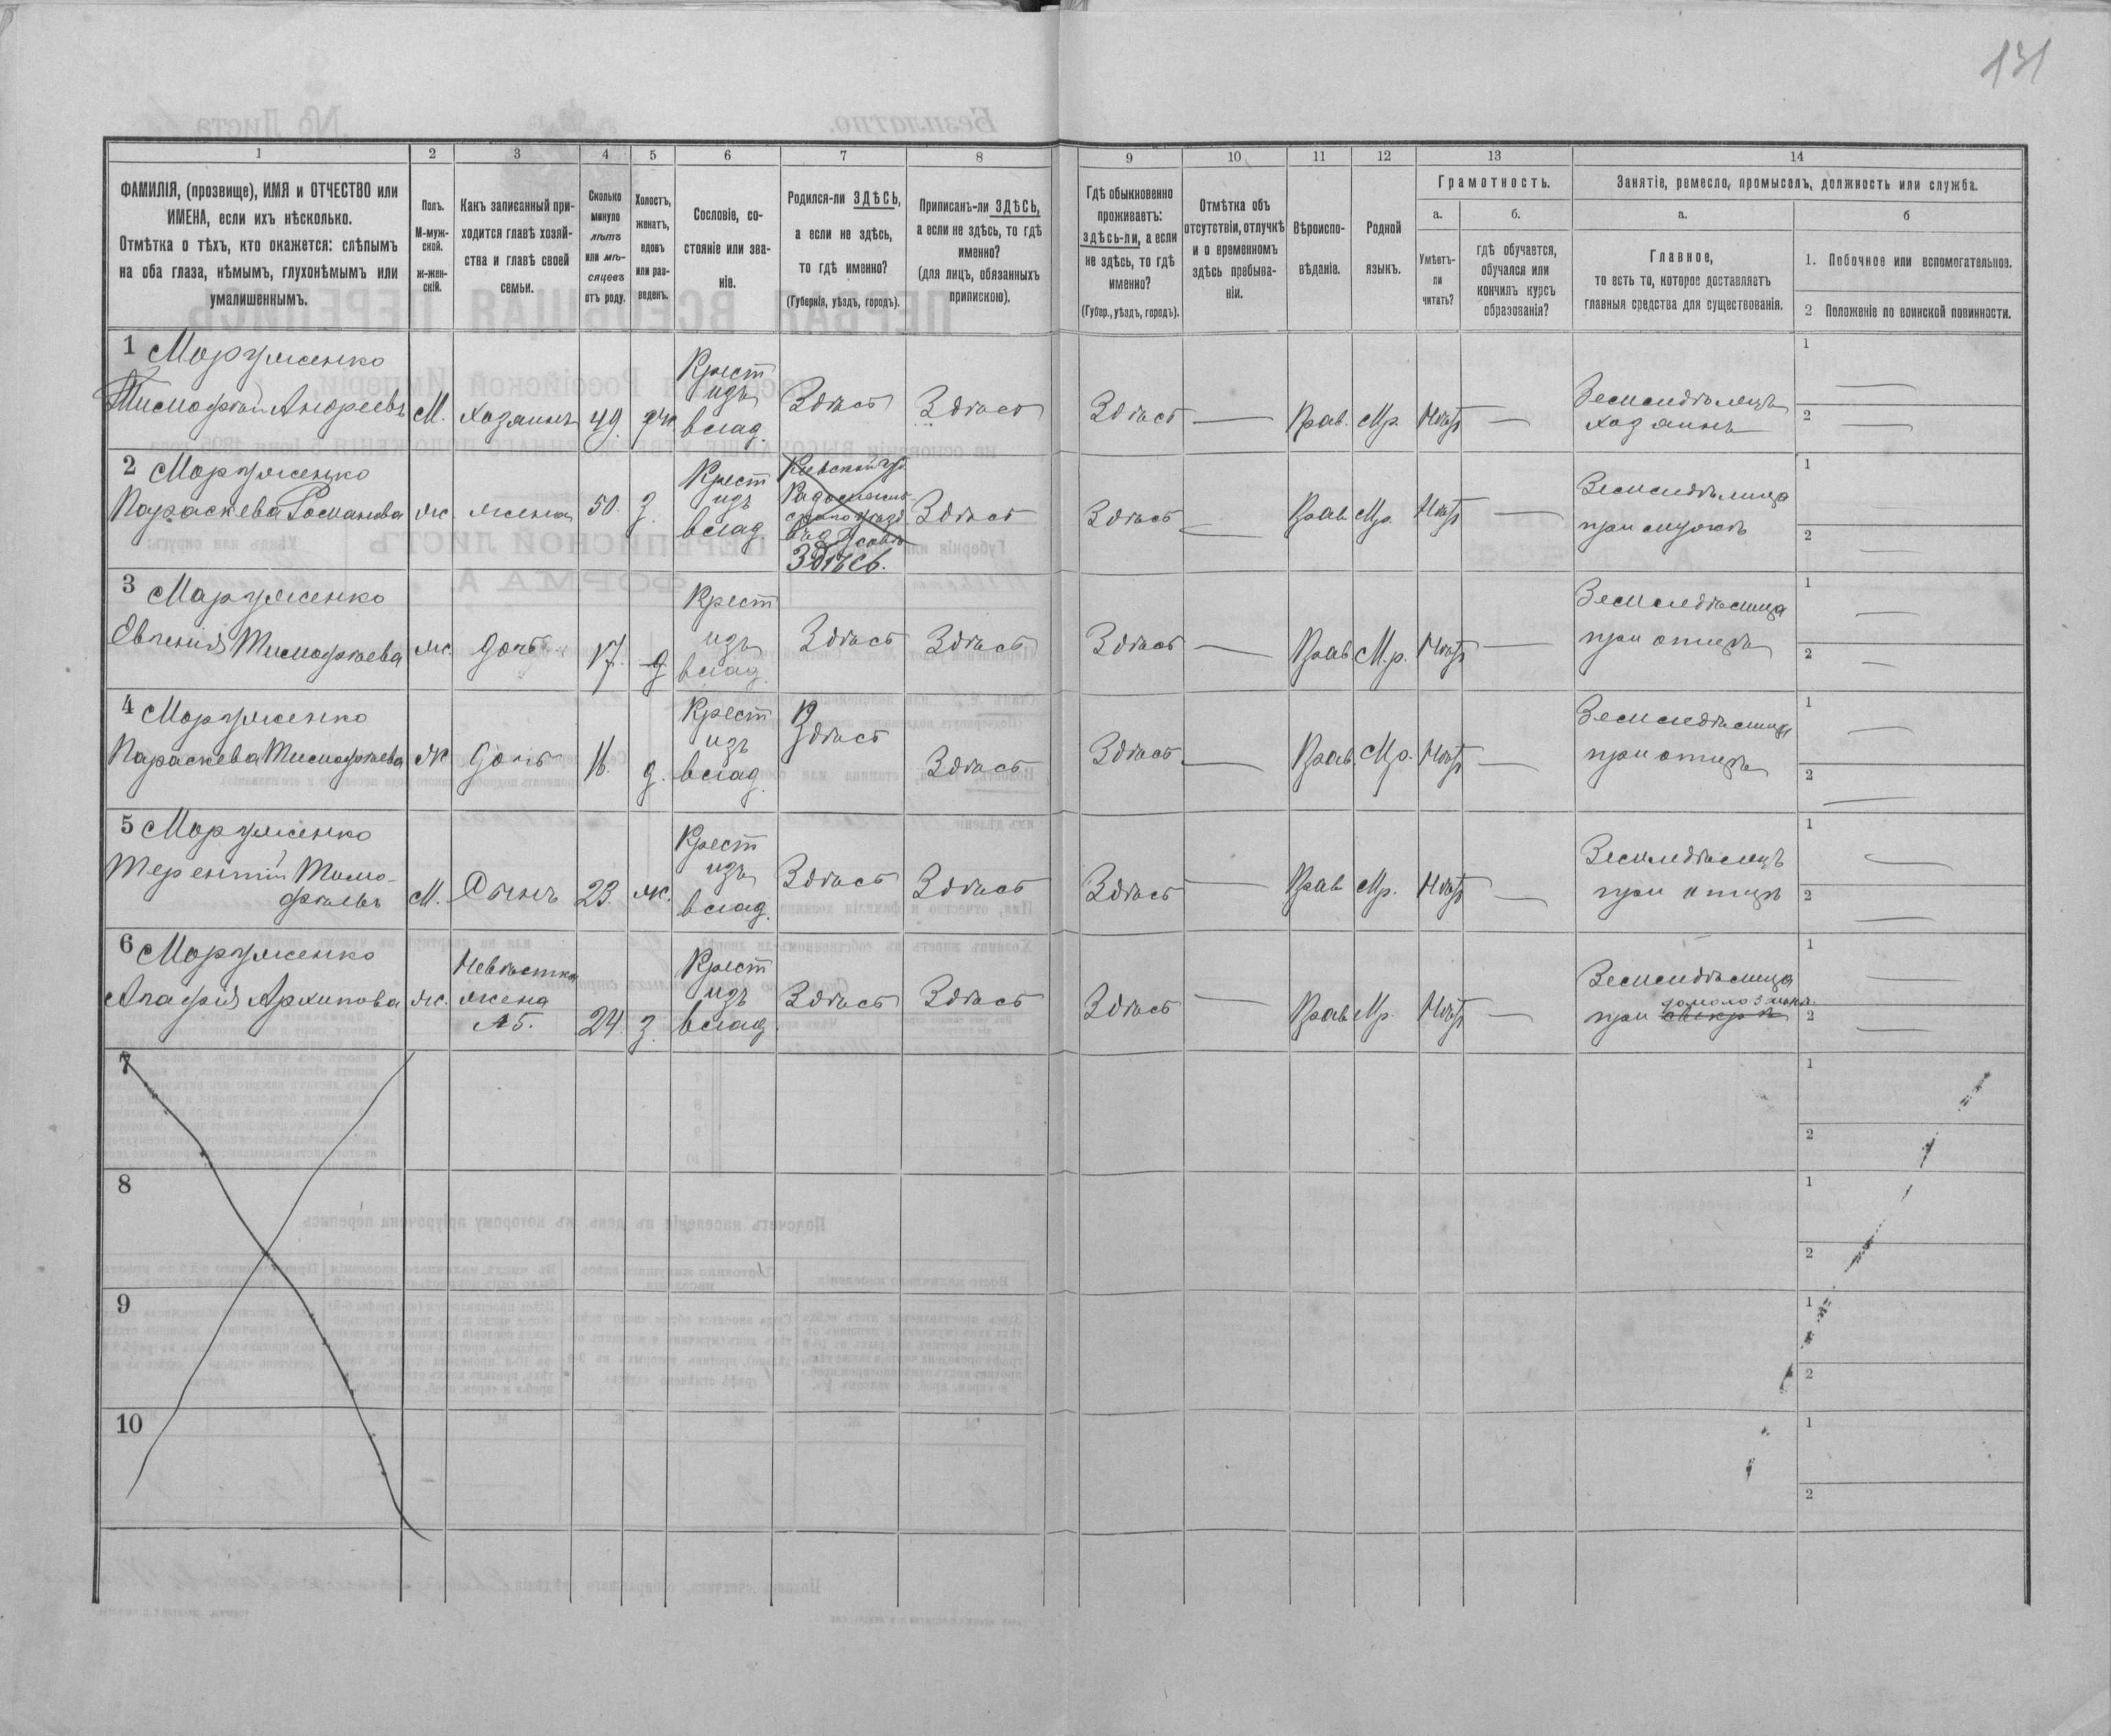 131
1 2 3 4 5 6 7 8 9 10 11 12 13 14
ФАМИЛІЯ, (прозвище), ИМЯ и ОТЧЕСТВО или
ИМЕНА, если ихъ нѣсколько.
Отмѣтка о тѣхъ, кто окажется: слѣпымъ
на оба глаза, нѣмымъ, глухонѣмымъ или
умалишеннымъ.
Полъ.
М-муж-
ской.
ж-жен-
скій.
Какъ записанный при-
ходится главѣ хозяй-
ства и главѣ своей
семьи.
Сколько
минуло
лѣтъ
или мѣ-
сяцевъ
отъ роду.
Холостъ,
женатъ,
вдовъ
или раз-
веденъ.
Сословіе, со-
стояніе или зва-
ніе.
Родился-ли ЗДѢСЬ,
а если не здѣсь,
то гдѣ именно?
(Губернія, уѣздъ, городъ).
Приписанъ-ли ЗДѢСЬ,
а если не здѣсь, то гдѣ
именно?
(для лицъ, обязанныхъ
припискою).
Гдѣ обыкновенно
проживаетъ:
здѣсь-ли, а если
не здѣсь, то гдѣ
именно?
(Губер., уѣздъ, городъ).
Отмѣтка объ
отсутствіи, отлучкѣ
и о временномъ
здѣсь пребыва-
ніи.
Вѣроиспо-
вѣданіе.
Родной
языкъ.
Грамотность.
а. б.
Умѣетъ-
ли
читать?
гдѣ обучается,
обучался или
кончилъ курсъ
образованія?
Занятіе, ремесло, промыселъ, должность или служба.
а. б
Главное,
то есть то, которое доставляетъ
главныя средства для существованія.
1. Побочное или вспомогательное.
2. Положеніе по воинской повинности.
1 Моруженко
Тимофѣй Андреевъ М. Хозяинъ 49. Крест изъ влад. Здѣсь Здѣсь Здѣсь — Прав. Мр. Нѣтъ — Земледѣлецъ хозяинъ 1 — 2 —
2 Моруженко
Параскева Романова ж. жена 50. З. Крест изъ влад. Здѣсь. Здѣсь Здѣсь — Прав Мр. Нѣтъ — Земледѣлица при мужѣ 1 — 2 —
3 Моруженко
Евгенія Тимофѣева ж. Дочь 17. д Крест изъ влад. Здѣсь Здѣсь Здѣсь — Прав М.р. Нѣтъ — Земледѣлица при отцѣ 1 — 2 —
4 Моруженко
Параскева Тимофѣева ж Дочь 16. д. Крест изъ влад. Здѣсь Здѣсь Здѣсь — Прав. Мр. Нѣтъ — Земледѣлица при отцѣ 1 — 2 —
5 Моруженко
Терентій Тимо-
фѣевъ М. Сынъ 23. ж. Крест изъ влад. Здѣсь Здѣсь Здѣсь — Прав Мр. Нѣтъ — Земледѣлецъ при отцѣ 1 — 2 —
6 Моруженко
Агафія Архипова ж. Невѣстка жена №5. 24 З. Крест изъ влад. Здѣсь Здѣсь Здѣсь — Прав Мр. Нѣтъ — Земледѣлица при свекрѣ 1 — 2 —
7 1 2
8 1 2
9 1 2
10 1 2